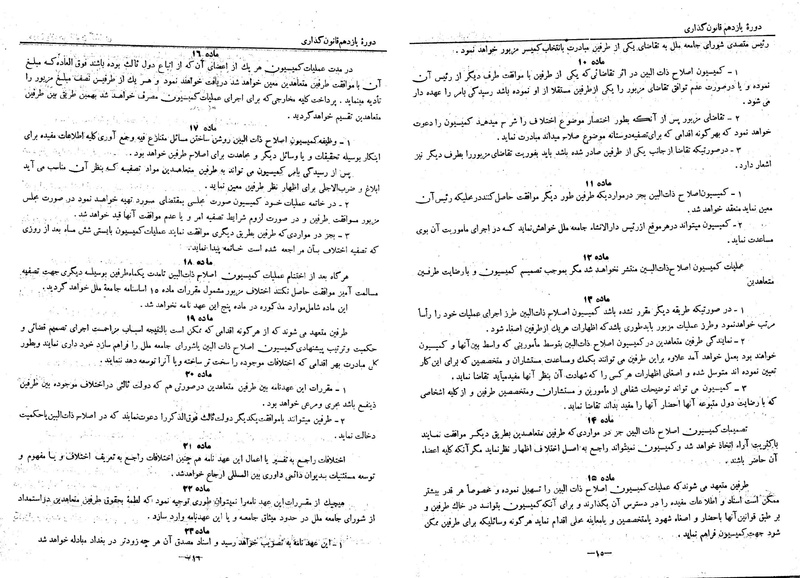 دورهٔ یازدهم قانون‌گذاری
رئیس متصدی شورای جامعه ملل به تقاضای یکی از طرفین مبادرت بانتخاب کمیسر مزبور خواهد نمود .
ماده ۱۰
۱ - کمیسیون اصلاح ذات البین در اثر تقاضائی که یکی از طرفین با موافقت طرف دیگر از رئیس آن
نموده و یا درصورت عدم توافق تقاضای مزبور را یکی ازطرفین مستقلا از او نموده باشد رسیدگی بامر را عهده دار
می شود .
۲ - تقاضای مزبور پس از آنکه بطور اختصار موضوع اختلاف را شرح میدهد کمیسیون را دعوت
خواهد نمود که بهرگونه اقدامی که برای تصفیه دوستانه موضوع صلاح میداند مبادرت نماید .
۳ - درصورتیکه تقاضا ازجانب یکی از طرفین صادر شده باشد باید بفوریت تقاضای مزبوررا بطرف دیگر نیز
اشعار دارد .
ماده ۱۱
۱ - کمیسیون اصلاح ذات‌البین بجز درمواردیکه طرفین طور دیگر موافقت حاصل کنند درمحلیکه رئیس آن
معین نماید منعقد خواهد شد .
۲ - کمیسیون میتواند درهرموقع ازرئیس دارالانشاء جامعه ملل خواهش نماید که در اجرای مأموریت آن بوی
مساعدت نماید .
ماده ۱۲
عملیات کمیسیون اصلاح ذات‌البین منتشر نخواهد شد مگر بموجب تصمیم کمیسیون و با رضایت طرفین
متعاهدین
ماده ۱۳
۱ - در صورتیکه طریقه دیگر مقرر نشده باشد کمیسیون اصلاح ذات‌البین طرز اجرای عملیات خود را رأساً
مرتب خواهد نمود وطرز عملیات مزبور باید طوری باشد که اظهارات هریك ازطرفین اصغاء شود .
۲ - نمایندگی طرفین متعاهدین در کمیسیون اصلاح ذات‌البین بتوسط مأمورینی که واسط بین آنها و کمیسیون
خواهند بود بعمل خواهد آمد علاوه براین طرفین می توانند بکمك ومساعدت مستشاران و متخصصین که برای این کار
تعیین نموده اند متوسل شده و اصغای اظهارات هرکسی را که شهادت آن بنظر آنها مفیدمیآید تقاضا نماید .
۳ - کمیسیون می تواند توضیحات شفاهی از مأمورین و مستشاران و متخصصین طرفین و از کلیه اشخاصی
که با رضایت دول متبوعه آنها احضار آنها را مفید بداند تقاضا نماید .
ماده ۱۴
تصمیمات کمیسیون اصلاح ذات البین جز در مواردی که طرفین متعاهدین بطریق دیگر موافقت نمایند
باکثریت آراء اتخاذ خواهد شد و کمیسیون نمیتواند راجع به اصل اختلاف اظهار نظر نماید مگر آنکه کلیه اعضاء
آن حاضر باشند .
ماده ۱۵
طرفین متعهد می شوند که عملیات کمیسیون اصلاح ذات البین را تسهیل نموده و خصوصاً هر قدر بیشتر
ممکن است اسناد و اطلاعات مفیده را در دسترس آن بگذارند و برای آنکه کمیسیون بتواند در خاك طرفین و
بر طبق قوانین آنها باحضار و اصغاء شهود یامتخصصین و یامعاینه محلی اقدام نماید هرگونه وسائلیکه برای طرفین ممکن
شود جهت کمیسیون فراهم نماید .
-۱۵-
دورهٔ یازدهم قانون‌گذاری
ماده ۱۶
در مدت عملیات کمیسیون هر یك از اعضای آن که از اتباع دول ثالث بوده باشند فوق العاده که مبلغ
آن با موافقت طرفین متعاهدین معین خواهد شد دریافت خواهند نمود و هر یك از طرفین نصف مبلغ مزبور را
تأدیه مینماید . پرداخت کلیه مخارجی که برای اجرای عملیات کمیسیون مصرف خواهد شد بهمین طریق بین طرفین
متعاهدین تقسیم خواهد گردید .
ماده ۱۷
۱ - وظیفه کمیسیون اصلاح ذات البین روشن ساختن مسائل متنازع فیه وجمع آوری کلیه اطلاعات مفیده برای
اینکار بوسیله تحقیقات و یا وسائل دیگر و مجاهدت برای اصلاح طرفین خواهد بود .
پس از رسیدگی بامر کمیسیون می تواند به طرفین متعاهدین مواد تصفیه که بنظر آن مناسب می آید
ابلاغ و ضرب‌الاجلی برای اظهار نظر طرفین معین نماید .
۲ - در خاتمه عملیات خود کمیسیون صورت مجلسی بمقتضای مورد تهیه خواهد نمود در صورت مجلس
مزبور موافقت طرفین و در صورت لزوم شرایط تصفیه امر و یا عدم موافقت آنها قید خواهد شد .
۳ - بجز در مواردی که طرفین بطریق دیگری موافقت نمایند عملیات کمیسیون بایستی شش ماه بعد از روزی
که تصفیه اختلاف بآن مراجعه شده است خاتمه پیدا نماید.
ماده ۱۸
هرگاه بعد از اختتام عملیات کمیسیون اصلاح ذات‌البین تامدت یکماه طرفین بوسیله دیگری جهت تصفیه
مسالمت آمیز موافقت حاصل نکنند اختلاف مزبور مشمول مقررات ماده ۱۵ اساسنامه جامعهٔ ملل خواهد گردید .
این ماده شامل موارد مذکوره در ماده پنج این عهد نامه نخواهد شد .
ماده ۱۹
طرفین متعهد می شوند که از هرگونه اقدامی که ممکن است بالنتیجه اسباب مزاحمت اجرای تصمیم قضائی و
حکمیت وترتیب پیشنهادی کمیسیون اصلاح ذات البین یاشورای جامعه ملل را فراهم سازد خود داری نمایند وبطور
کل مبادرت بهر اقدامی که اختلافات موجوده را سخت تر ساخته ویا آنرا توسعه دهد ننمایند .
ماده ۲۰
۱ - مقررات این عهدنامه بین طرفین متعاهدین درصورتی هم که دولت ثالثی دراختلاف موجوده بین طرفین
ذینفع باشد مجری ومرعی خواهد بود .
۲ - طرفین میتوانند باموافقت یکدیگر دولت ثالث فوق‌الذکر را دعوت نمایند که در اصلاح ذات‌البین یاحکمیت
دخالت نماید .
ماده ۲۱
اختلافات راجع به تفسیر یا اعمال این عهد نامه هم چنین اختلافات راجع به تعریف اختلاف و یا مفهوم و
توسعه مستثنیات بدیوان دائمی داوری بین المللی ارجاع خواهدشد .
ماده ۲۲
هیچیك از مقررات این عهد نامه را نمیتوان طوری توجیه نمود که لطمهٔ بحقوق طرفین متعاهدین دراستمداد
از شورای جامعه ملل در حدود میثاق جامعه و یا این عهدنامه وارد سازد .
ماده ۲۳
۱ - این عهد نامه به تصویب خواهد رسید و اسناد مصدق آن هر چه زودتر در بغداد مبادله خواهد شد
-۱۶-